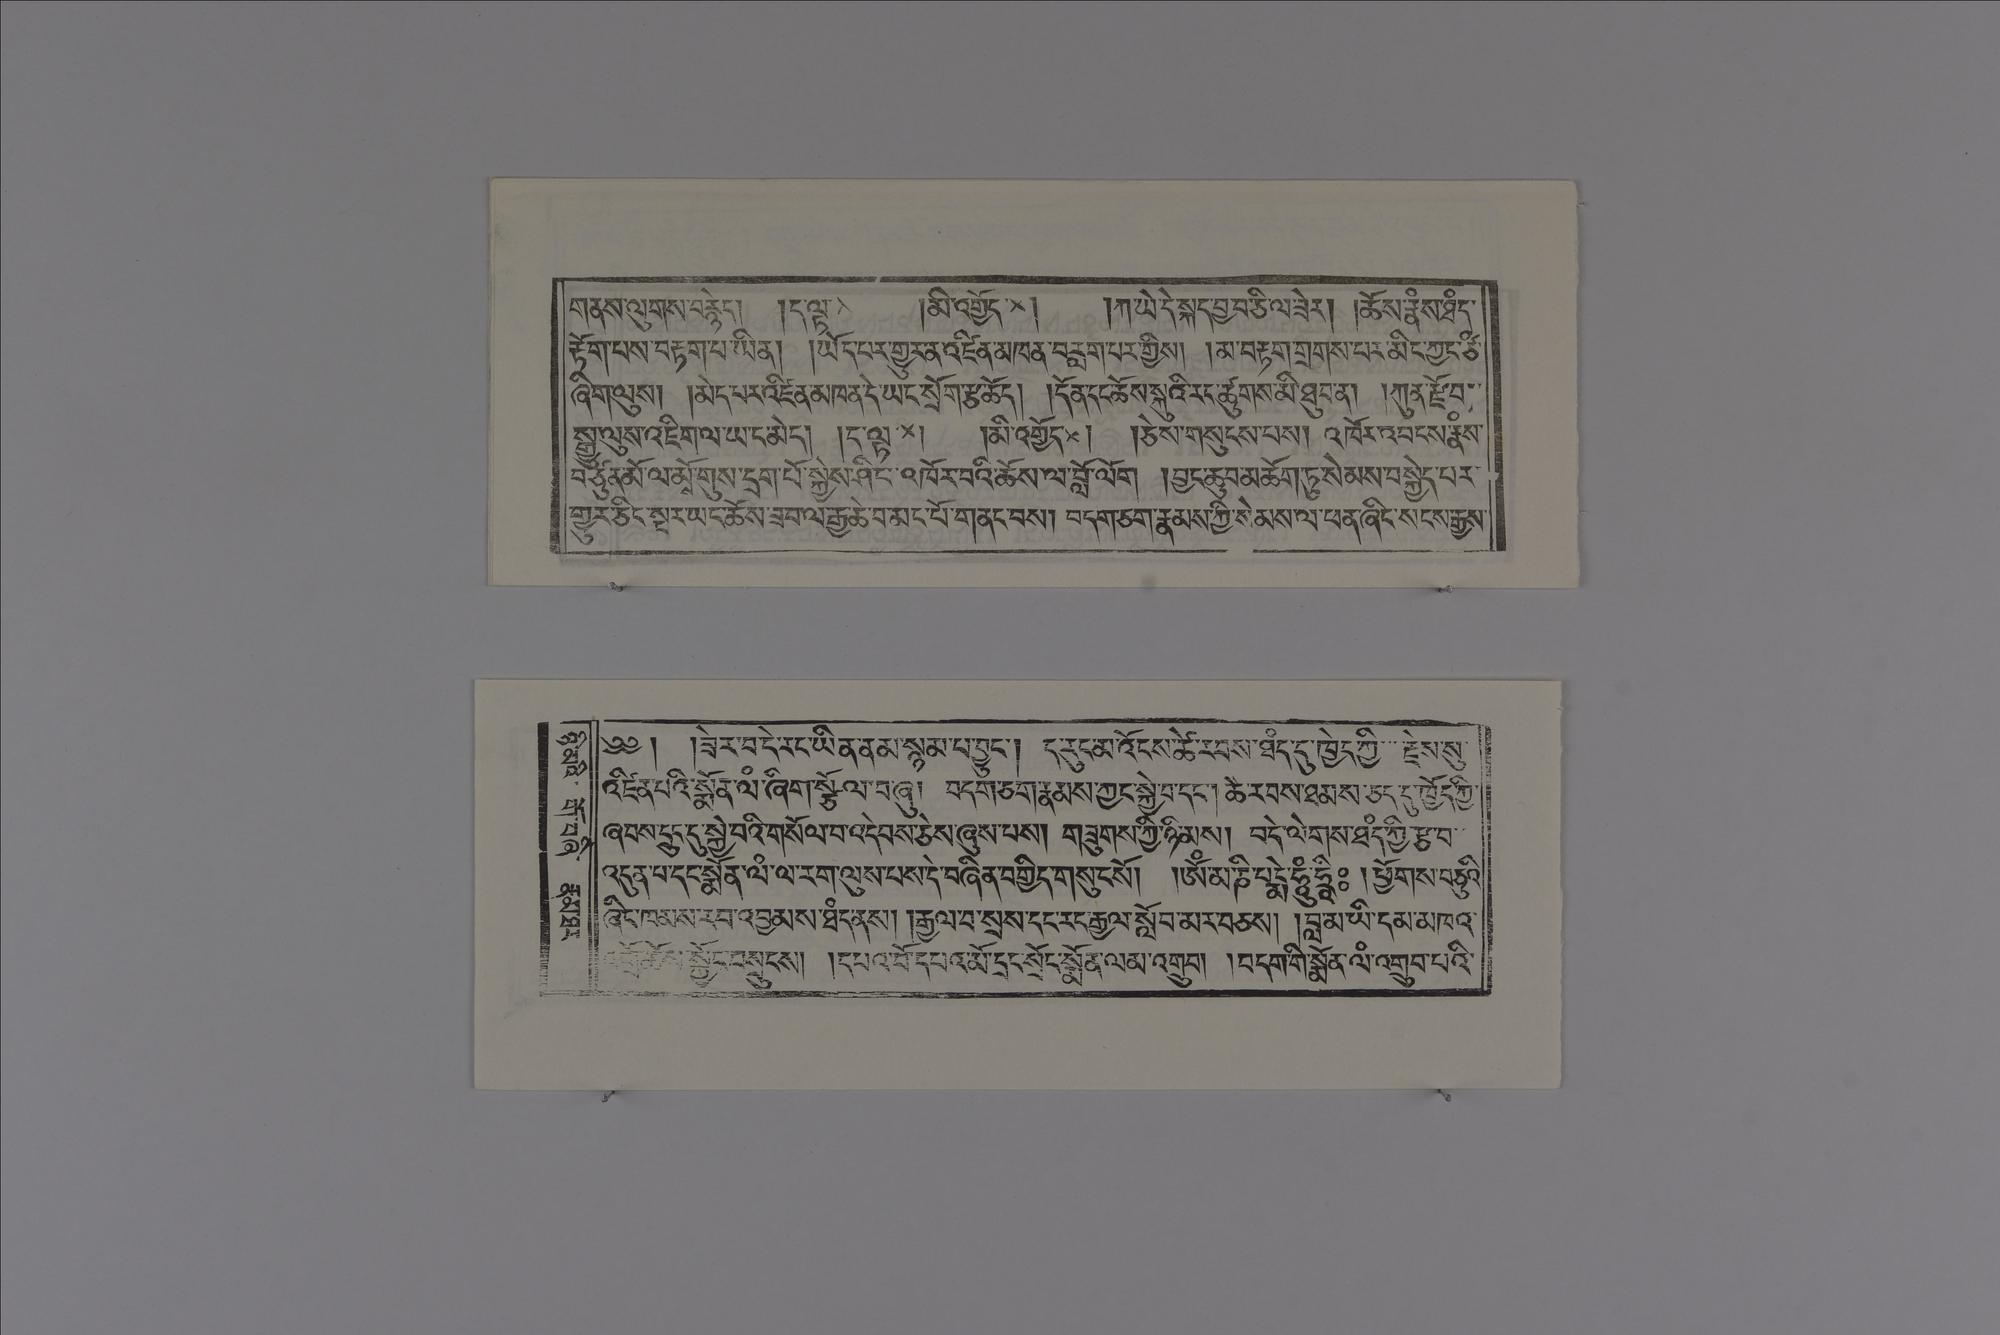 གནས་ལུགས་བརྙེད། །ད་ལྟ་× །མི་འགྱོད་×། །ཀ་ཡེ་དེ་སྐད་བྱ་བ་ཅི་ལ་ཟེར། །ཆོས་རྣཾས་ཐཾད་
རྟོག་པས་བརྟག་པ་ཡིན། །ཡོད་པར་གྱུར་ན་འཛིན་མཁན་བརླག་པར་གྱིས། །མ་བརྟག་གྲགས་པར་མིང་ཀྱང་ཙི་
ཞིག་ལུས། །མེད་པར་འཛིན་མཁན་དེ་ཡང་སྲོག་རྩ་ཆོད། །དོན་དང་ཆོས་སྐུའི་རང་ཚུགས་མི་ཐུབ་ན། །ཀུན་རྫོབ་
སྒྱུ་ལུས་འཇིག་ལ་ཡ་ང་མེད། །ད་ལྟ་×། །མི་འགྱོད་×། །ཅེས་གསུངས་པས། འཁོར་འབངས་རྣཾས་
བཙུན་མོ་ལ་མོ་གུས་དྲག་པོ་སྐྱེས་ཤིང་འཁོར་བའི་ཆོས་ལ་བློ་ལོག །བྱང་ཆུབ་མཆོག་ཏུ་སེམས་བསྐྱེད་པར་
གྱུར་ཅིང་སླར་ཡང་ཆོས་ཟབ་ལ་རྒྱ་ཆེ་བ་མང་པོ་གནང་བས། བདག་ཅག་རྣམས་ཀྱི་སེམས་ལ་ཕན་ཞིང་སངས་རྒྱས་
༄༅། །ཟེར་བ་དེ་རང་ཡིན་ནམ་སྙམ་པ་བྱུང་། ད་དུང་མ་འོངས་ཚེ་རབས་ཐཾད་དུ་ཁྱེད་ཀྱི་རྗེས་སུ་
འཛིན་པའི་སྨོན་ལཾ་ཞིག་སྩོལ་བ་ཞུ། བདག་ཅག་རྣམས་ཀྱང་སྐྱེ་བ་དང་། ཚེ་རབས་ཐམས་ཅད་དུ་ཁྱོད་ཀྱི་
ཞབས་དྲུང་དུ་སྐྱེ་བའི་གསོལ་བ་འདེབས་ཅེས་ཞུས་པས། གཟུགས་ཀྱི་ཉི་མས། བདེ་ལེགས་ཐཾད་ཀྱི་རྩ་བ་
འདུན་པ་དང་སྨོན་ལཾ་ལ་རག་ལུས་པས་དེ་བཞིན་བགྱིད་གསུངསོ། །ཨོཾ་མ་ཎི་པདྨེ་ཧཱུྃ་ཧྲཱིཿ །ཕྱོགས་བཅུའི་
ཞིང་ཁམས་རབ་འབྱམས་ཐཾད་ནས། །རྒྱལ་བ་སྲས་དང་རང་རྒྱལ་སློབ་མར་བཅས། །བླ་མ་ཡི་དམ་མཁའ་
འགྲོ་ཆོས་སྐྱོང་བསྲུངས། །དཔའ་བོ་དཔའ་མོ་དྲང་སྲོང་སྨོན་ལམ་འགྲུབ། །བདག་གི་སྨོན་ལཾ་འགྲུབ་པའི་